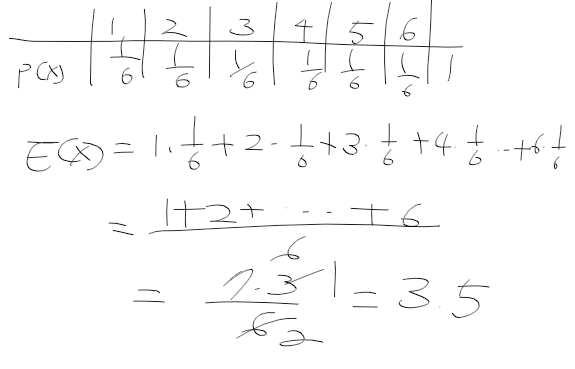 1 2 3 4 5 6
P(X) 1/6 1/6 1/6 1/6 1/6 1/6 1
E(X) = 1·1/6 + 2·1/6 + 3·1/6 + 4·1/6 ·· + 6·1/6
= (1+2+ ··· +6)/6
= (7·3)/6 1 2 = 3.5